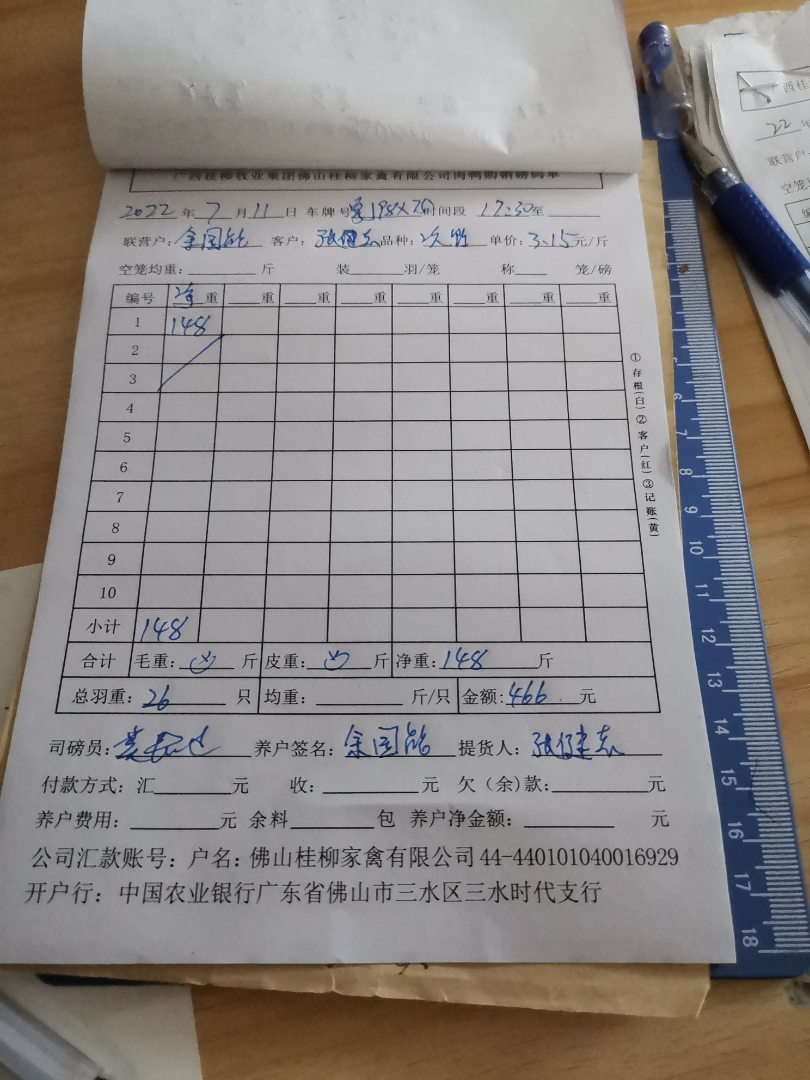 广西桂柳牧业集团佛山桂柳家禽有限公司肉鸭购销磅码单
2022 年 7 月 11 日 车牌号 时间段 17:30 至
联营户: 余国能 客户: 张健东 品种: 次鸭 单价: 3.15 元/斤
空笼均重: 斤 装 羽/笼 称 笼/磅
编号 净重 重 重 重 重 重 重 重
1 148
2
3
4
5
6
7
8
9
10
小计 148
合计 毛重: 斤 皮重: 斤 净重: 148 斤
总羽重: 26 只 均重: 斤/只 金额: 466 元
司磅员: 养户签名: 余国能 提货人: 张健东
付款方式: 汇 元 收: 元 欠（余）款: 元
养户费用: 元 余料 包 养户净金额: 元
公司汇款账号: 户名: 佛山桂柳家禽有限公司 44-440101040016929
开户行: 中国农业银行广东省佛山市三水区三水时代支行
①存根(白)②客户(红)③记账(黄)
5
6
7
8
9
10
11
12
13
14
15
16
17
18
西桂
22
联营户
空笼